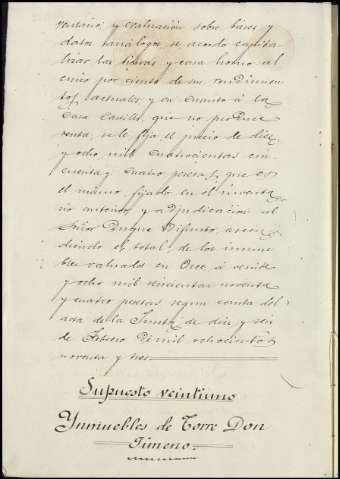 ventario y evaluación sobre bases y
datos análogos se acordó capita
lizar las tierras y casa horno al
cinco por ciento de sus rendimien
tos actuales y en cuanto á la
Casa Castillo, que no produce
renta, se le fija el precio de diez
y ocho mil cuatrocientas cin
cuenta y cuatro pesetas, que es
el mismo fijado en el inventa
rio anterior y adjudicación al
Señor Duque difunto, ascen
diendo el total de los inmue
bles valorados en Orce, á veinte
y ocho mil seiscientas noventa
y cuatro pesetas segun consta del
acta de la Junta de diez y seis
de Febrero de mil ochocientos
noventa y tres
Supuesto veintiuno
Ynmuebles de Torre Don
Jimeno.